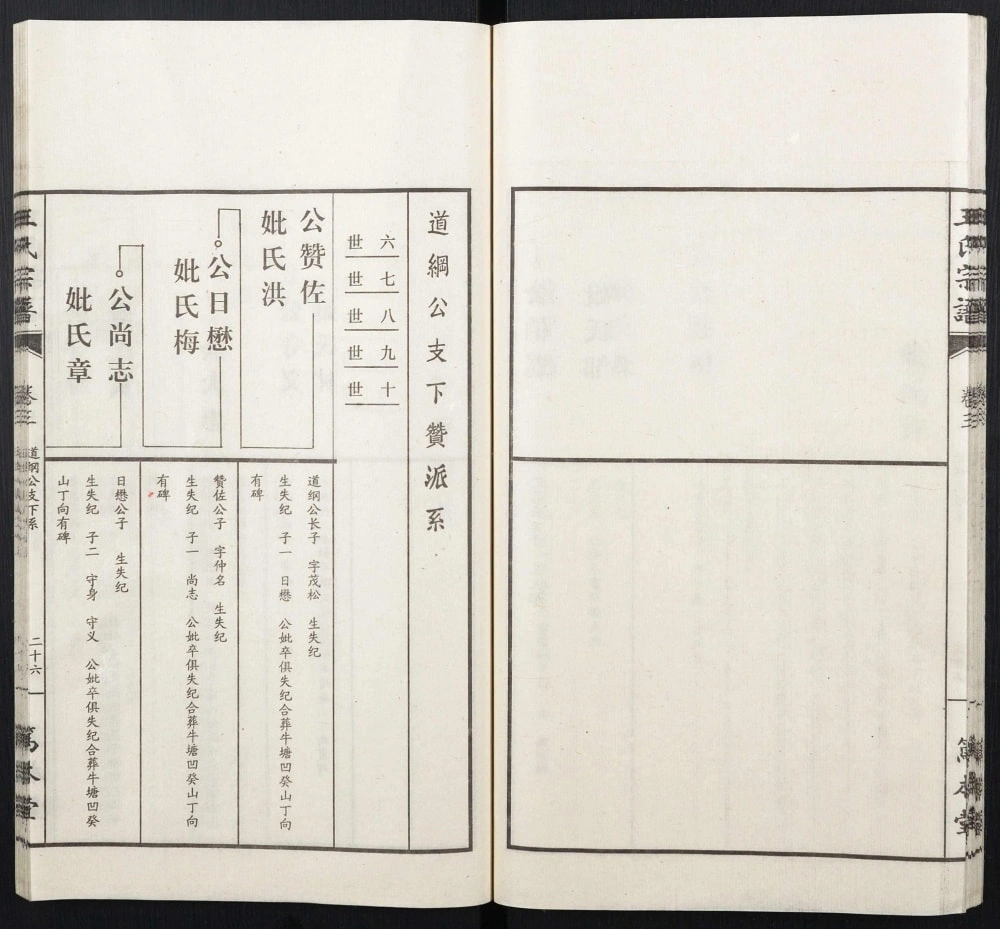 王氏宗譜
卷三
篤本堂
道綱公支下贊派系
六世
七世
八世
九世
十世
公赞佐
妣氏洪
公日懋
妣氏梅
公尚志
妣氏章
道纲公长子 字茂松 生失纪
生失纪 子一 日懋 公妣卒俱失纪合葬牛塘凹癸山丁向
有碑
赞佐公子 字仲名 生失纪
生失纪 子一 尚志 公妣卒俱失纪合葬牛塘凹癸山丁向
有碑
日懋公子 生失纪
生失纪 子二 守身 守义 公妣卒俱失纪合葬牛塘凹癸
山丁向有碑
王氏宗譜
卷三
道纲公支下系
二十六
篤本堂